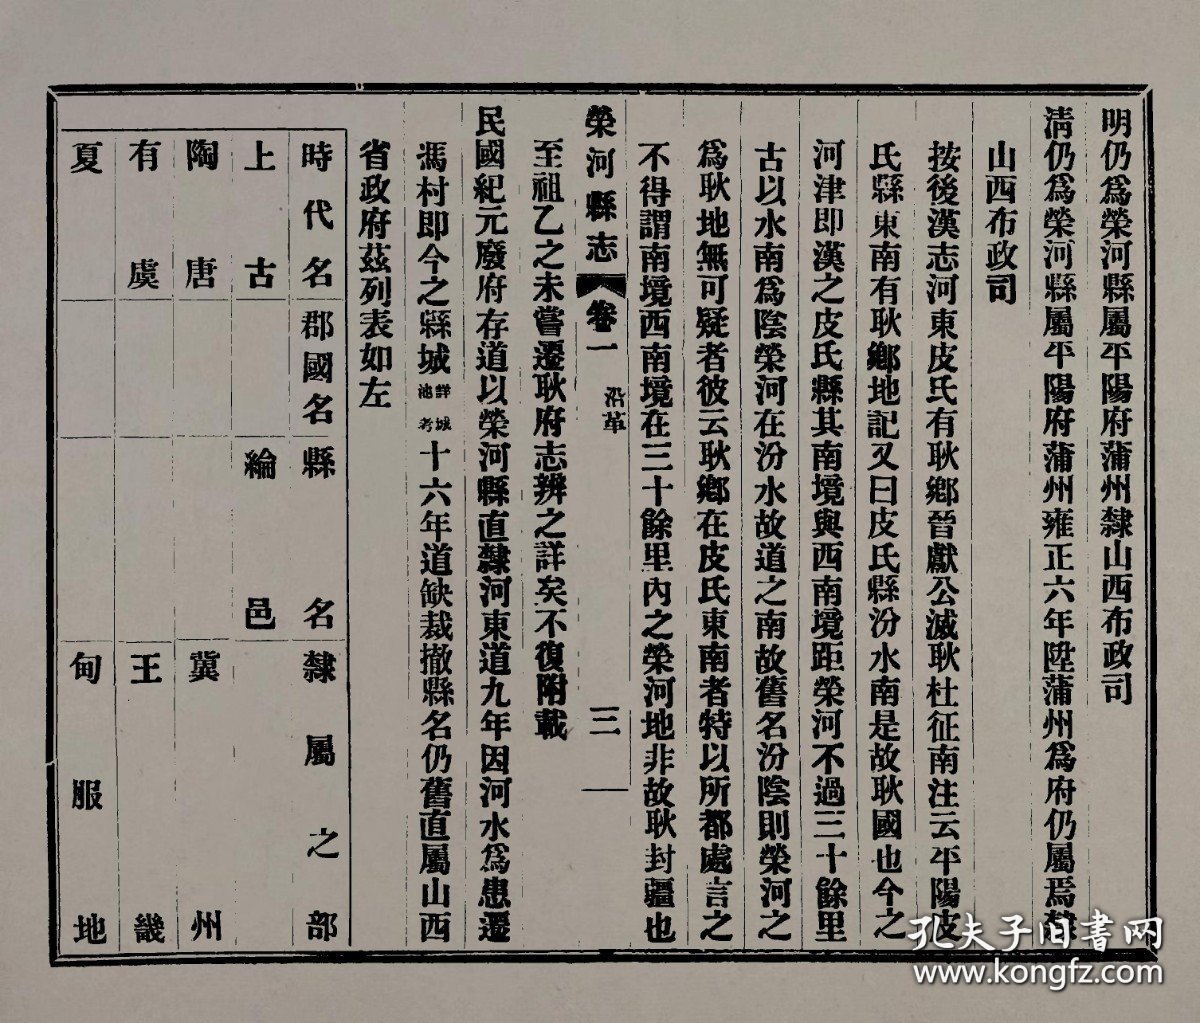 明仍爲榮河縣屬平陽府蒲州隸山西布政司
淸仍爲榮河縣屬平陽府蒲州雍正六年陞蒲州爲府仍屬焉隸
山西布政司
按後漢志河東皮氏有耿鄕晉獻公滅耿杜征南注云平陽皮
氏縣東南有耿鄕地記又曰皮氏縣汾水南是故耿國也今之
河津即漢之皮氏縣其南境與西南境距榮河不過三十餘里
古以水南爲陰榮河在汾水故道之南故舊名汾陰則榮河之
爲耿地無可疑者彼云耿鄕在皮氏東南者特以所都處言之
不得謂南境西南境在三十餘里內之榮河地非故耿封疆也
榮河縣志 卷一 沿革 三
至祖乙之未嘗遷耿府志辨之詳矣不復附載
民國紀元廢府存道以榮河縣直隸河東道九年因河水爲患遷
馮村即今之縣城詳城池考十六年道缺裁撤縣名仍舊直屬山西
省政府茲列表如左
時代名 郡國名 縣名 隸屬之部
上古 綸邑
陶唐 冀州
有虞 王畿
夏 甸服地
孔夫子旧书网
www.kongfz.com